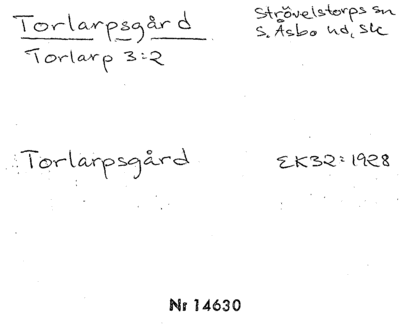 Torlarpsgård
Torlarp 3:2
Strövelstorps sn
S. Åsbo hd, Sk
Torlarpsgård
EK32:1928
Nr 14630